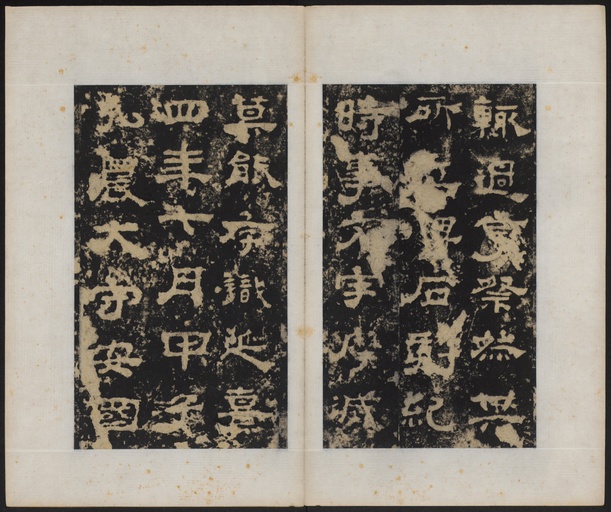 輒過亨祭然其
所立碑石刻紀
時事文字摩滅
莫能存識延熹
四年七月甲子
弘農大守安國